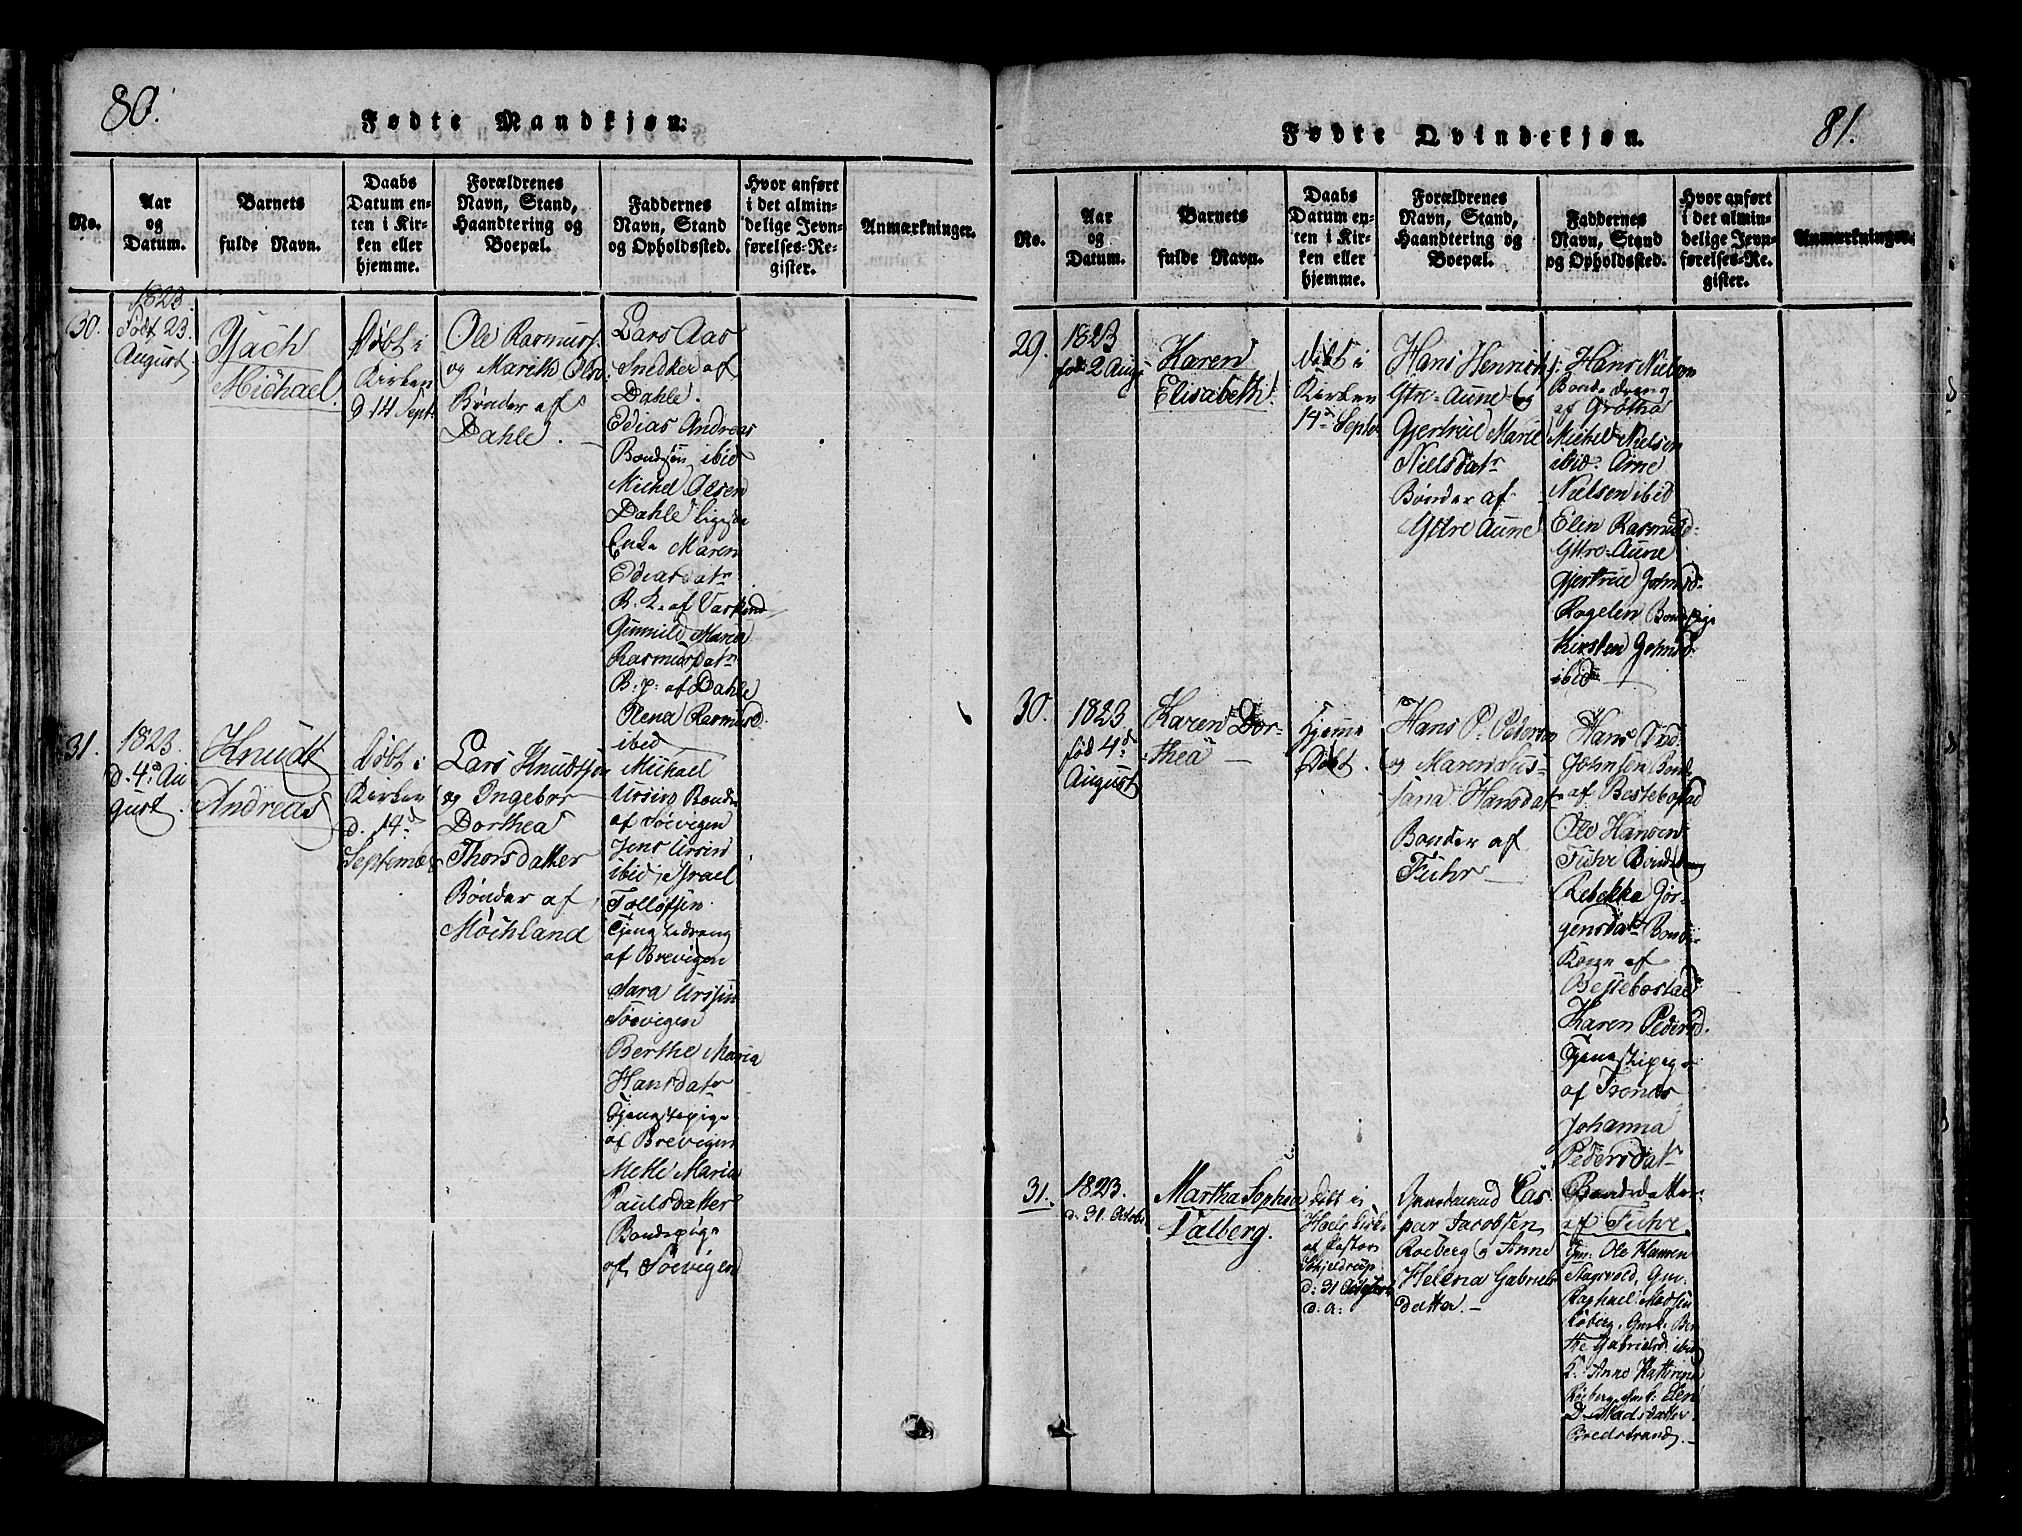 80.
Fødte Mandkjøn.
No.
Aar
og
Datum.
Barnets
fulde Navn.
Daabs
Datum en-
ten i Kir-
ken eller
hjemme.
Forældrenes
Navn, Stand,
Haandtering og
Boepæl.
Faddernes
Navn, Stand
og Opholdssted.
Hvor anført
i det almin-
delige Jevn-
førelses-Re-
gister.
Anmærkninger.
30.
1823.
Født 23
August
Isach
Michael.
Døbt i
Kirken
d 14 Sept.
Ole Rasmus.
og Marith Ols
Bønder af
Dahle.
Lars Aas
Snedker af
Dahle.
Edias Andreas
Bondesøn ibid
Michel Olsen
Dahle ligesaa
Enke Maren
Ediasdatr
B: K. af
Gunnild Maria
Rasmusdatr
B: p: af Dahle
Rena Rasmusd.
ibid
31.
1823.
d. 4d Au
gust.
Knudt
Andreas
Døbt i
Kirken
d. 14d
Septemb
Lars Knudtsen
og Ingebor
Dorthea
Thorsdatter
Bønder af
Møchland
Michael
Ursin Bonde
af Søevigen
Jens Ursin
ibid, Israel
Tollofsen
Tjenestedreng
af Brevigen
Sara Urssin
Søevigen
Berthe Maria
Hansdatr
Tjenestepige
af Brevigen
Mette Maria
Paulsdatter
Bondepige
af Søevigen
81.
Fødte Qvindekjøn.
No.
Aar
og
Datum.
Barnets
fulde Navn.
Daabs
Datum en-
ten i Kir-
ken eller
hjemme.
Forældrenes
Navn, Stand,
Haandtering og
Boepæl.
Faddernes
Navn, Stand
og Opholdssted.
Hvor anført
i det almin-
delige Jevn-
førelses-Re-
gister.
Anmærkninger.
29.
1823
fød: 2 Aug:
Karen
Elisabeth.
Døbt i
Kirken
14d Septr
Hans Henrich
Ytre-Aune og
Gjertrud Marie
Nielsdatr
Bønder af
Ytre Aune
Hans Nielsen
Bondedreng
af Grøthø
Michel Nielsen
ibid. Arne
Nielsen ibid
Elin Rasmusd:
Yttre-Aune
Gjertrud Johnsd
Rogelen Bondepige
Kirsten Johnsd
ibid
30.
1823.
fød 4d
August
Karen Dor-
thea
Hjemme
Døbt.
Hans P. Pedersen
og Maren Su-
sana Hansdatr
Bønder af
Fuhr
Hans
Johnsen Bonde
af Bestebostad
Ole Hansen
Fuhr Bondedreng
Rebekka Jør-
gensdatr Bonde
Kone af
Bestebostad
Karen Pedersd.
Tjenestepige
af Trones
Johanna
Pedersdatr
Bondedatter
af Fuhr
31.
1823.
d. 31 Octobr
Martha Sophia
Valberg.
Døbt i
Hoels Kirke
af Pastor
Schjeldrup
d: 31
d. a:
Cas-
par Jacobsen
Roeberg og Anne
Helena Gabriels
datter.
Gm: Ole Hansen
Stagsvold, Gm.
Raphael Madsen
Røberg, Be
the Gabrielsd ibid
K. Anne Katterina
Roeberg, Elen
D. Madsdatter
Bredstrand.